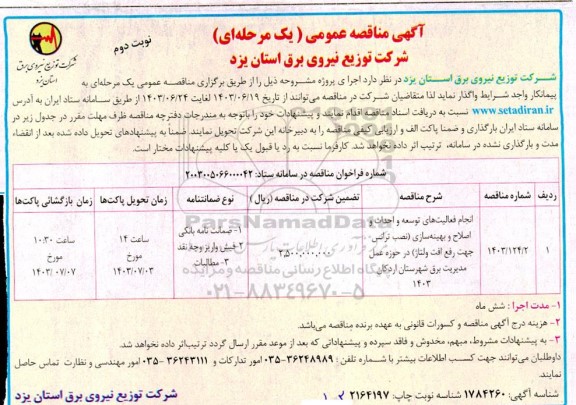 آگهی مناقصه عمومی ( یک مرحله‌ای)
نوبت دوم
شرکت توزیع نیروی برق استان یزد
شرکت توزیع نیروی برق
استان یزد
شرکت توزیع نیروی برق استان یزد در نظر دارد اجرای پروژه مشروحه ذیل را از طریق برگزاری مناقصه عمومی یک مرحله‌ای به
پیمانکار واجد شرایط واگذار نماید لذا متقاضیان شرکت در مناقصه می‌توانند از تاریخ ۱۴۰۳/۰۶/۱۹ لغایت ۱۴۰۳/۰۶/۲۴ از طریق سامانه ستاد ایران به آدرس
www.setadiran.ir نسبت به دریافت اسناد مناقصه اقدام نمایند و پیشنهادات خود را باتوجه به مندرجات دفترچه مناقصه ظرف مهلت مقرر در جدول زیر در
سامانه ستاد ایران بارگذاری و ضمنا پاکت الف و ارزیابی کیفی مناقصه را به دبیرخانه این شرکت تحویل نمایند. ضمناً به پیشنهادهای تحویل داده شده بعد از انقضاء
مدت و بارگذاری نشده در سامانه، ترتیب اثر داده نخواهد شد. کارفرما نسبت به رد یا قبول یک یا کلیه پیشنهادات مختار است.
شماره فراخوان مناقصه در سامانه ستاد: ۲۰۰۳۰۰۵۰۶۶۰۰۰۰۴۲
ردیف شماره مناقصه شرح مناقصه تضمین شرکت در مناقصه (ریال) نوع ضمانتنامه زمان تحویل پاکت‌ها زمان بازگشائی پاکت‌ها
۱ ۱۴۰۳/۱۲۴/۲ انجام فعالیت‌های توسعه و احداث و اصلاح و بهینه‌سازی (نصب ترانس جهت رفع افت ولتاژ) در حوزه عمل مدیریت برق شهرستان اردکان ۱۴۰۳ ۳,۵۰۰,۰۰۰,۰۰۰ ۱- ضمانت نامه بانکی ۲- فیش واریز وجه نقد ۳- مطالبات ساعت ۱۴ مورخ ۱۴۰۳/۰۷/۰۳ ساعت ۱۰:۳۰ مورخ ۱۴۰۳/۰۷/۰۷
ParsNamadData
پایگاه اطلاع رسانی مناقصه و مزایده
۰۲۱-۸۸۳۴۹۶۷۰-۵
۱- مدت اجرا : شش ماه
۲- هزینه درج آگهی مناقصه و کسورات قانونی به عهده برنده مناقصه می‌باشد.
۳- به پیشنهادات مشروط، مبهم، مخدوش و فاقد سپرده و پیشنهاداتی که بعد از موعد مقرر ارسال گردد ترتیب‌اثر داده نخواهد شد.
داوطلبان می‌توانند جهت کسب اطلاعات بیشتر با شماره تلفن : ۳۶۲۴۸۹۸۹-۰۳۵ امور تدارکات و ۳۶۲۴۳۱۱۱-۰۳۵ امور مهندسی و نظارت تماس حاصل
نمایند.
شناسه آگهی: ۱۷۸۴۲۶۰ شناسه نوبت چاپ: ۲۱۶۴۱۹۷
شرکت توزیع نیروی برق استان یزد